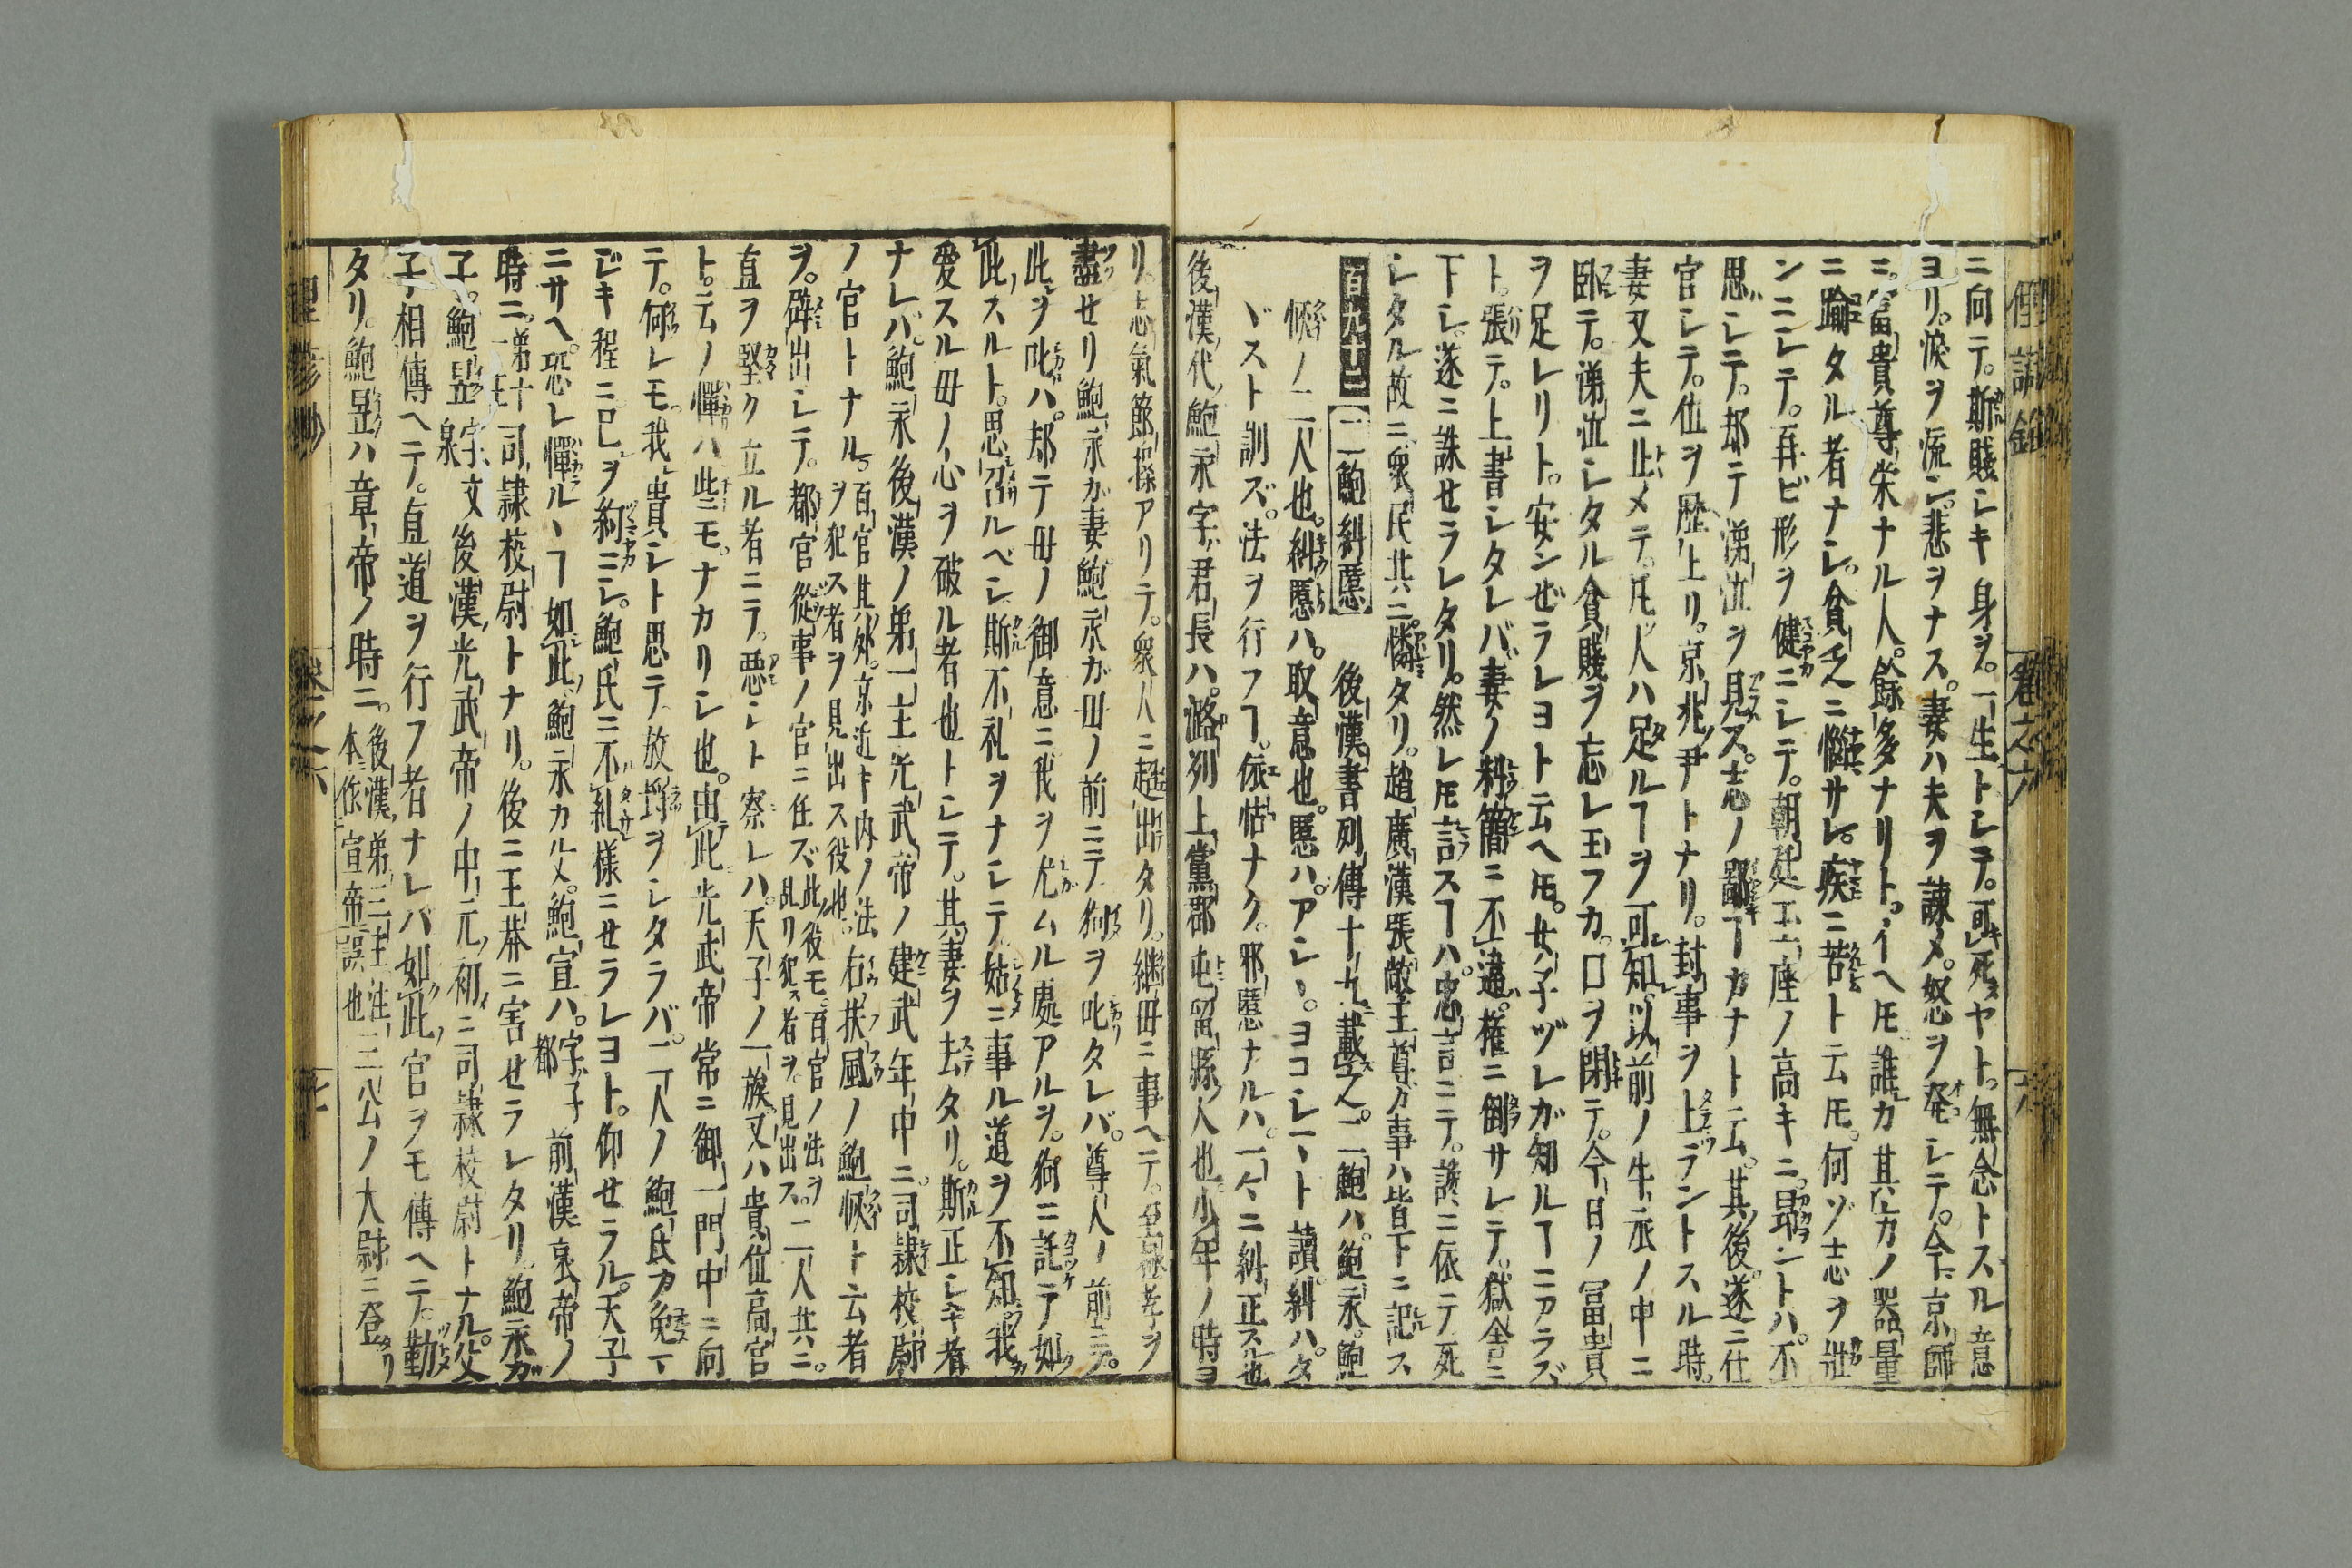 ニ向テ。斯賤シキ身ヲ。一生トシテ。可死ヤト。無念トスル意
ヨリ。涙ヲ流シ。悲ヲナス。妻ハ夫ヲ諫メ。怒ヲ発シテ。今京師
ニ。富貴尊栄ナル人。餘多ナリト。イヘ𪜈。誰カ其カノ器量
ニ踰タル者ナシ。貧乏ニ惱サレ。疾ニ苦ト云𪜈。何ゾ志ヲ
ンニシテ。再ビ形ヲ健ニシテ。朝廷玉座ノ高キニ。昂ントハ。不
思シテ。却テ涕泣ヲ見ス。志ノ鄙ヿカナト云。其後。遂ニ仕
官シテ。位ヲ歴上リ。京兆尹トナリ。封事ヲ上ラントスル時。
妻又夫ニ止メテ。𪜈人ハ足ルヿヲ可知。以前ノ牛衣ノ中ニ
臥テ。涕泣シタル貧賤ヲ忘レ玉フカ。口ヲ閉テ。今日ノ冨貴
ヲ足レリト。安ンゼラレヨト云ヘ𪜈。女子ヅレガ知ルヿニアラズ
ト。張テ。上書シタレバ。妻ノ料簡ニ不違。権ニサレテ。獄舎ニ
下シ。遂ニ誅セラレタリ。然レ𪜈言スヿハ。忠言ニテ。讒ニ依テ死
シタル故ニ。衆民共ニ。憐タリ。趙廣漢張敞王尊ガ事ハ皆下ニ記ス
百九十二 二鮑糾慝 後漢書列傳十九載之。二鮑ハ。鮑永。鮑
恢ノ二人也。糾慝ハ。取意也。慝ハ。アシヽ。ヨコシマヽト讀。糾ハ。タ
ヾスト訓ズ。法ヲ行フヿ。依怙ナク。邪慝ナルハ。一々ニ糾正スル也
後漢代。鮑永字君長ハ。潞列上黨郡屯留縣人也。少年ノ時ヨ
リ。志氣節操アリテ。衆人ニ超出タリ。継母ニ事ヘテ。至極孝ヲ
盡セリ鮑永ガ妻鮑永ガ母ノ前ニテ狗ヲ叱タレバ。尊人ノ前ニテ。
此ヲ叱ハ。却テ母ノ御意ニ我ヲ尤ムル處アルヲ。狗ニ託テ如
此スルト。思召ルベシ斯不礼ヲナシテ姑ニ事ル道ヲ不知。我
愛スル母ノ心ヲ破ル者也トシテ。其妻ヲ去タリ。斯正シキ者
ナレバ。鮑永後漢ノ第一主光武帝ノ建武年中ニ。司隷校尉
ノ官トナル。百官其外。京近ド内ノ法ヲ犯ス者ヲ見出ス役也。右扶風ノ鮑恢ト云者
ヲ。辟出シテ。都官從事ノ官ニ任ズ此役モ。百官ノ法ヲ乱リ犯ス者ヲ。見出ス。二人共ニ。
直ヲ堅ク立ル者ニテ。悪シト察レハ。天子ノ一族又ハ貴位高官
ト。云ノ憚ハ些ニモ。ナカリシ也。由此光武帝常ニ御一門中ニ向
テ。何レモ。我貴シト思テ放埒ヲシタラバ。二人ノ鮑氏カ免マ
ジキ程ニ已ヲ約ニシ。鮑氏ニ不糺様ニセラレヨト。仰セラル。天子
ニサヘ。恐レ憚ルヽヿ如此鮑永カ父。鮑宣ハ。字子都前漢哀帝ノ
時ニ。第十一主司隷校尉トナリ。後ニ王莽ニ害セラレタリ。鮑永ガ
子。鮑昱字文泉後漢光武帝ノ中元初ニ司隷校尉トナル。父
子相傳ヘテ。直道ヲ行フ者ナレバ如此官ヲモ傳ヘテ。勤
タリ。鮑昱ハ章帝ノ時ニ。後漢第三主注本作宣帝誤也三公ノ大尉ニ登リ